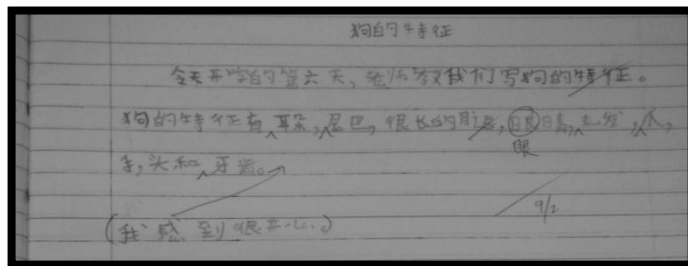 狗的特征
今天开学的第六天,老师教我们写狗的特征。
狗的特征有耳朵,尾巴,很长的,眼睛,毛发,爪,
手,头和牙齿。
眼
(我感到很开心。)
9/2